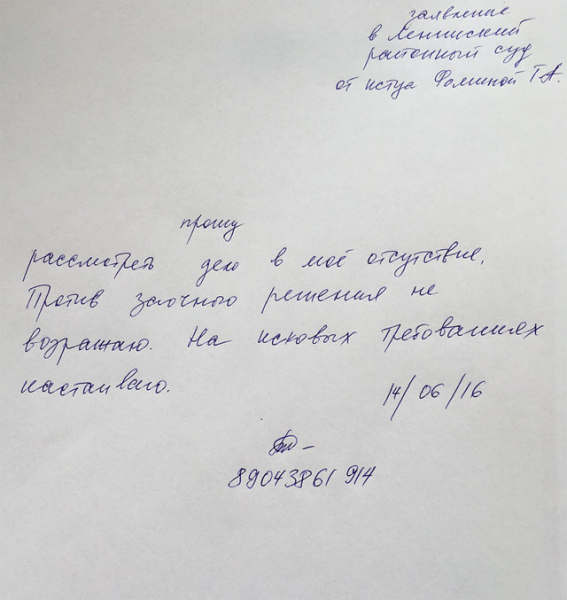 заявление
в Ленинский
районный суд
от истца Фоминой Т.А.
прошу
рассмотреть дело в моё отсутствие.
Против заочного решения не
возражаю. На исковых требованиях
настаиваю.
14/06/16
89043861914